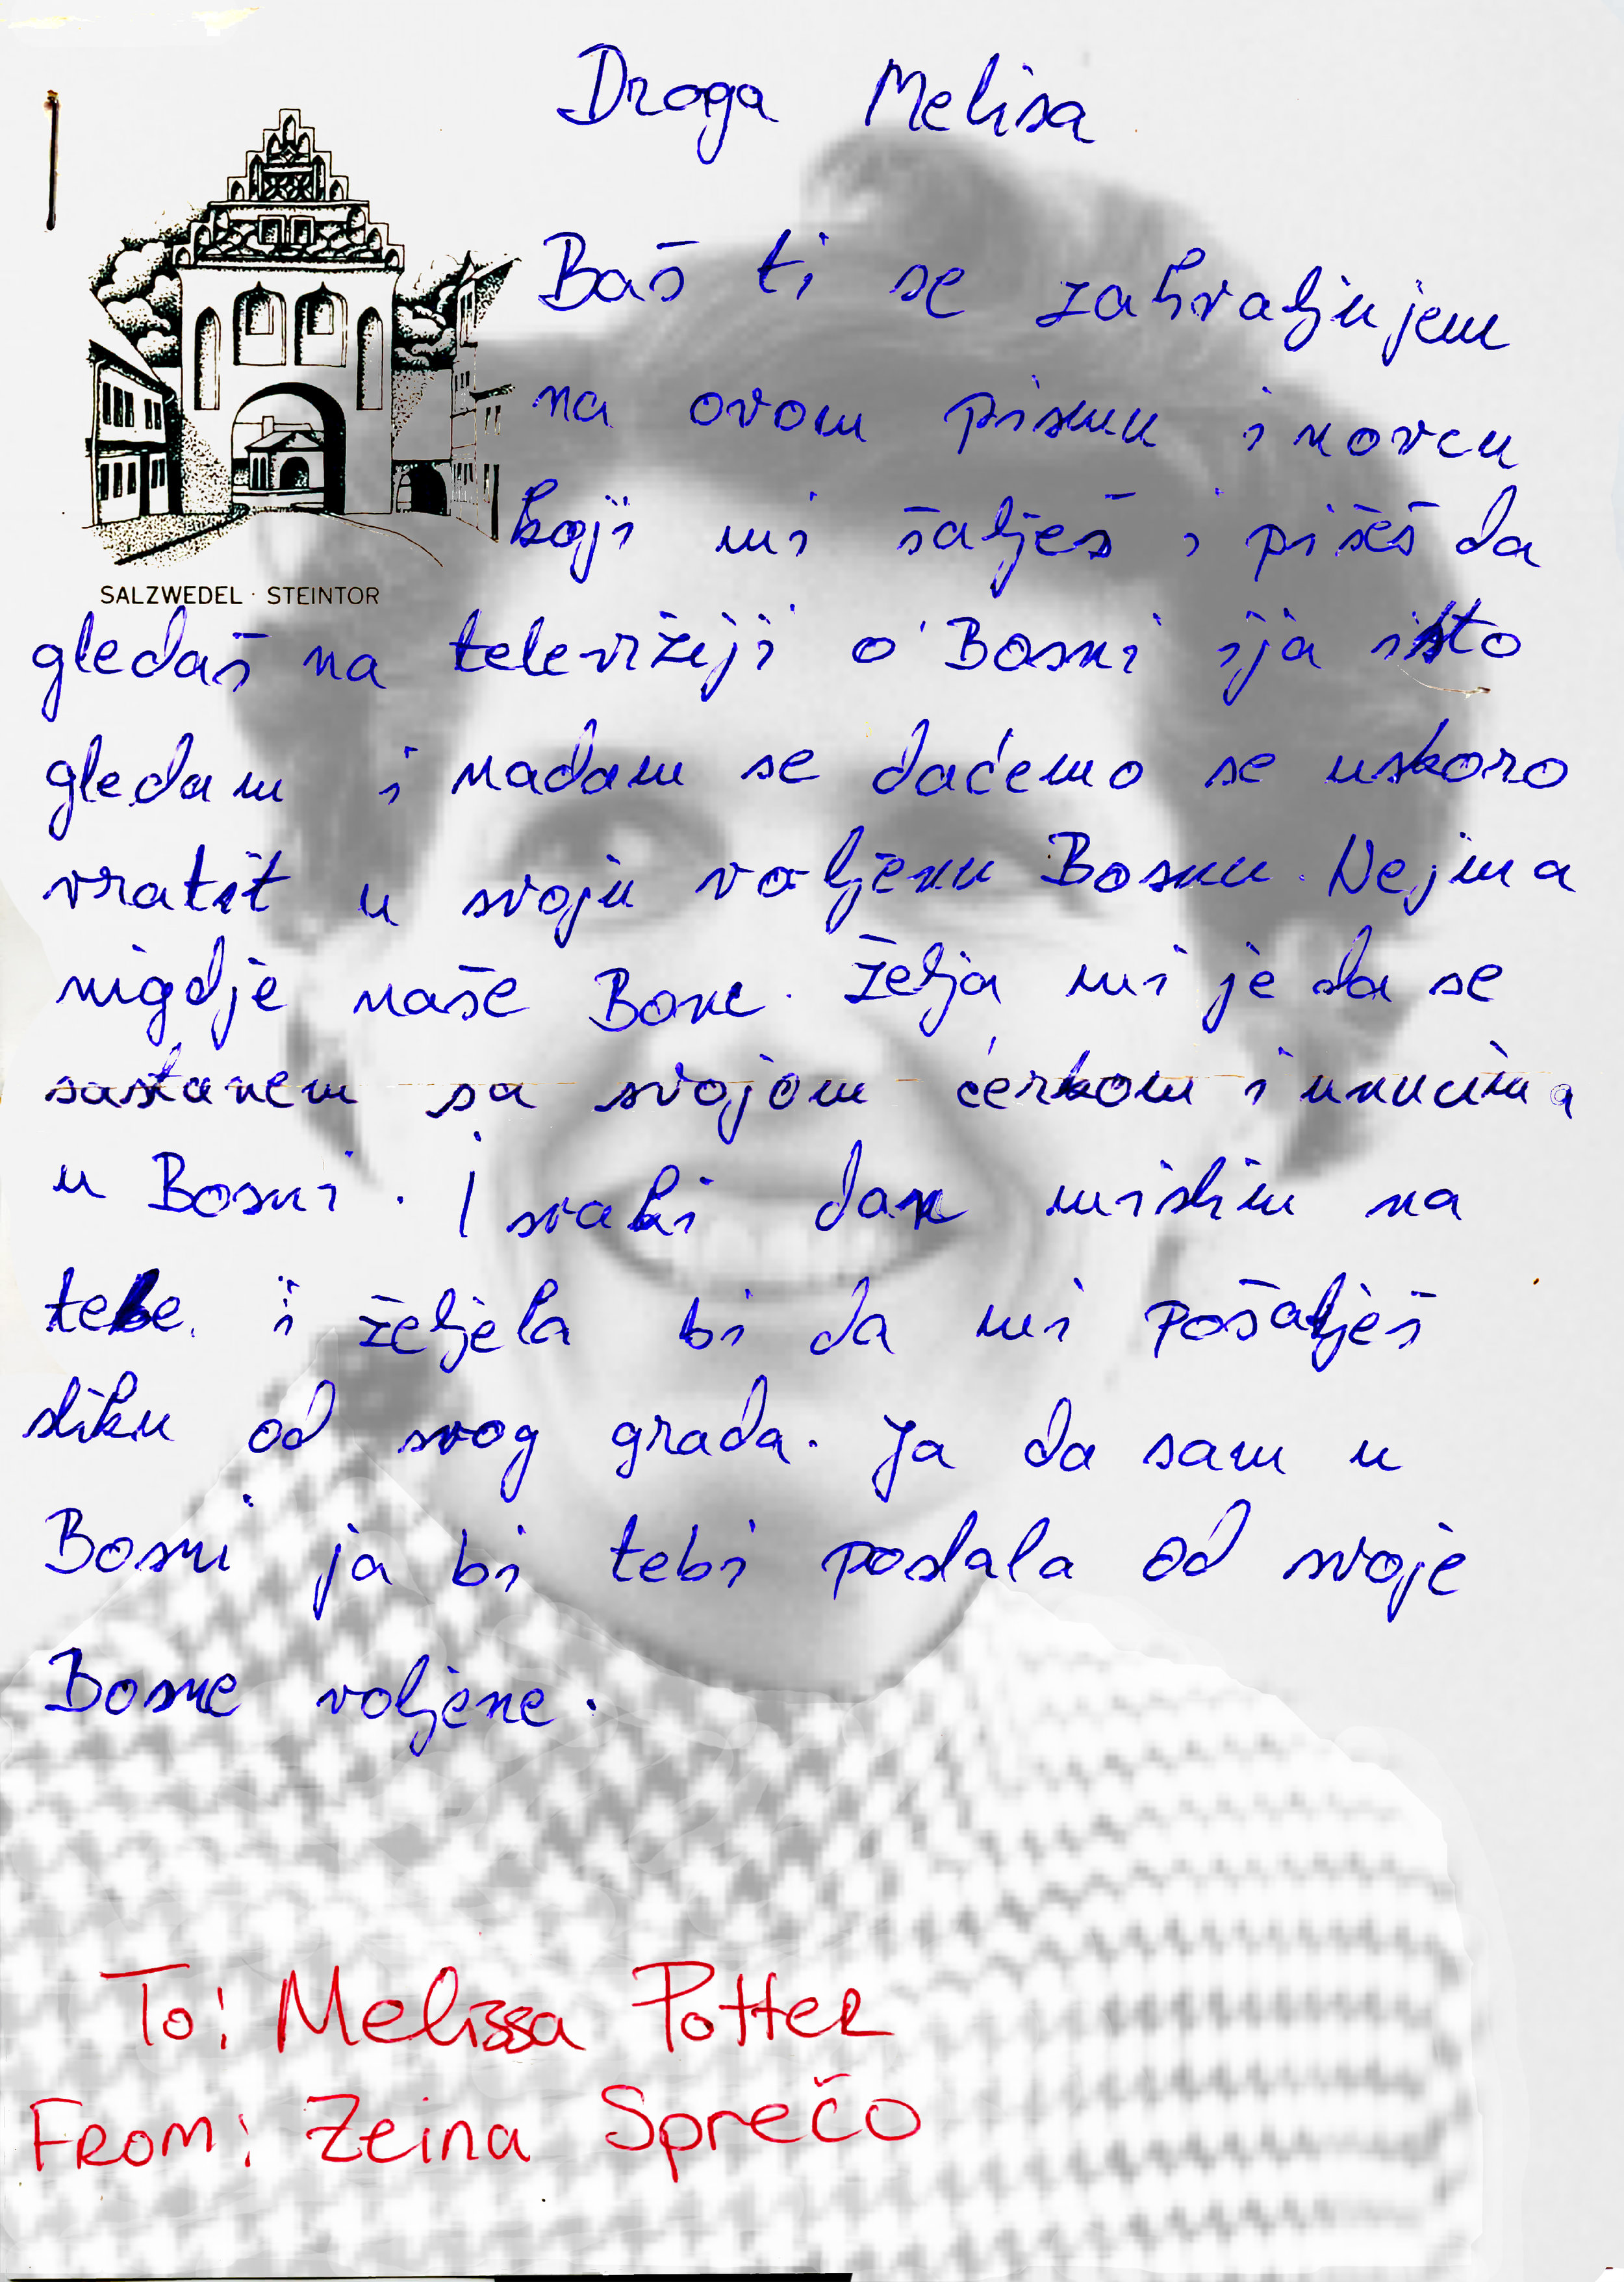 Droga Melisa
Baš ti se zahvaljujem
na ovom pismu i novcu
koji mi šalješ i pišeš da
SALZWEDEL · STEINTOR
gledaš na televižiji o Bosni ija isto
gledam i nadam se daćemo se uskoro
vratit u svoju voljenu Bosnu. Nejma
nigdje naše Bone. Želja mi je da se
sastanem sa svojom ćerkom i unucima
u Bosni. I svaki dan mislim na
tebe. i željela bi da mi pošalješ
sliku od svog grada. Ja da sam u
Bosni ja bi tebi poslala od svoje
Bosne voljene.
To: Melissa Potter
From: Zeina Sprečo